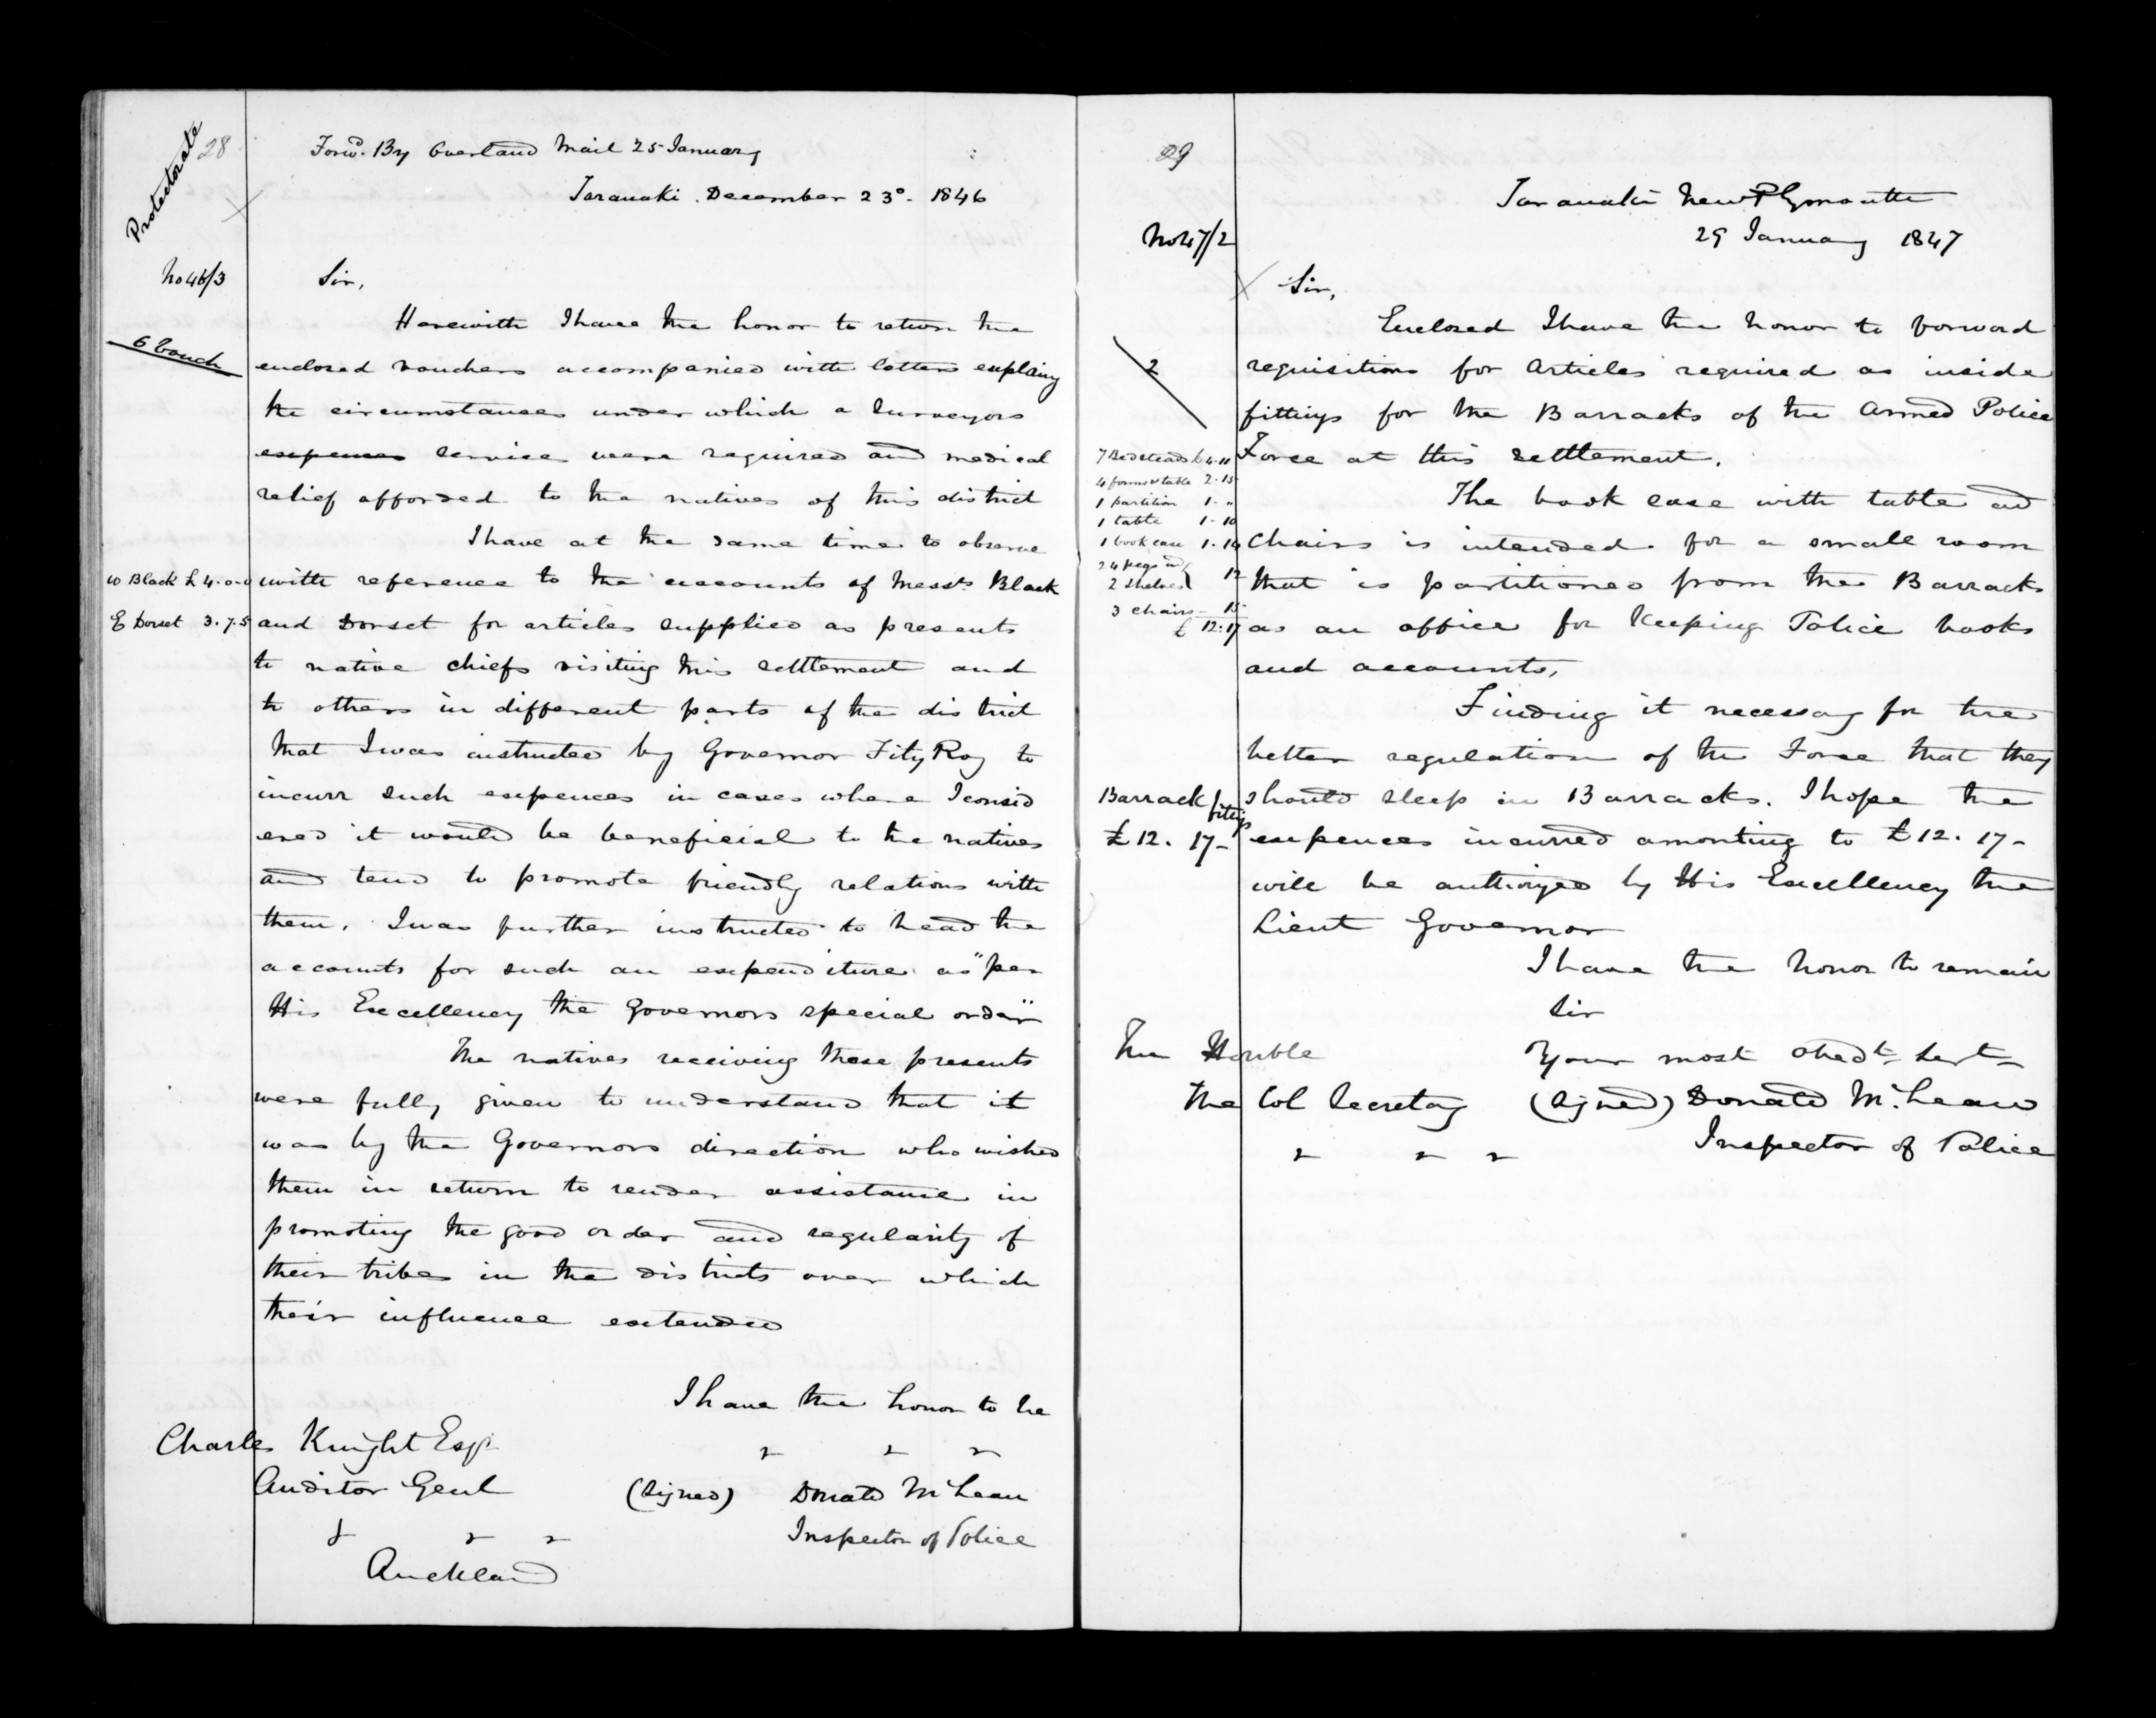 Protectorate
28
Forwd. By Overland Mail 25 January
Taranaki. December 23d. 1846
No 46/3
Sir,
Herewith I have the honor to return the
6 Vouch
enclosed vouchers accompanied with letters explaing
the circumstances under which a Surveyors
expences services were required and medical
relief afforded to the natives of this district
I have at the same time to observe
W Black £ 4.0.0
with reference to the accounts of Messrs. Black
E Dorset 3.7.5
and Dorset for articles supplied as presents
to native chiefs visiting this settlement and
to others in different parts of the district
that I was instructed by Governor FitzRoy to
incurr such expences in cases where I consid
ered it would be beneficial to the natives
and tend to promote friendly relations with
them. I was further instructed to head the
accounts for such an expenditure as "per
His Excellency the Governors special order"
The natives receiving these presents
were fully given to understand that it
was by the Governors direction who wished
them in return to render assistance in
promoting the good order and regularity of
their tribes in the districts over which
their influence extended
I have the honor to be
" " "
Charles Knight Esqr.
Auditor Genl
(Signed) Donald McLean
& " "
Inspector of Police
Auckland
29
Taranaki New Plymouth
No 47/2
29 January 1847
Sir,
Enclosed I have the honor to forward
2
requisitions for Articles required as inside
fittings for the Barracks of the Armed Police
Force at this settlement.
7 Bedsteads £4.11
4 forms & table 2.15
1 partition 1. "
1 table 1.10
1 book case 1.14
24 pegs and
2 shelves 12
3 chairs 15
£ 12.17
The book case with table and
chairs is intended for a small room
that is partitioned from the Barracks
as an office for Keeping Police books
and accounts,
Finding it necessary for the
better regulation of the Force that they
Barrack fittgs
£12. 17_
should sleep in Barracks. I hope the
expences incurred amonting to £12. 17_
will be authorized by His Excellency the
Lieut Governor
I have the honor to remain
Sir
The Honble
Your most obedt. Servt
The Col Secretary
(Signed) Donald McLean
" " "
Inspector of Police